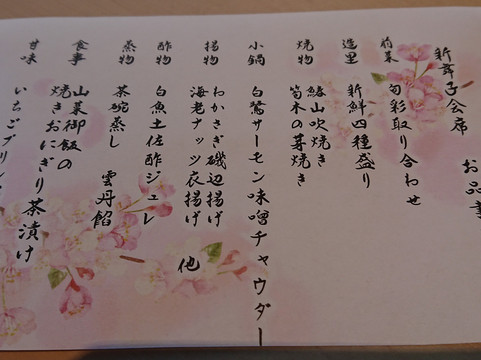 新芽子会席
お品書
前菜 旬彩取り合わせ
造里 新鮮四種盛り
焼物 鰆山吹焼き
筍木の芽焼き
小鍋 白鷺サーモン味噌チャウダー
揚物 わかさぎ磯辺揚げ
海老ナッツ衣揚げ 他
酢物 白魚土佐酢ジュレ
蒸物 茶碗蒸し 雲丹餡
食事 山菜御飯の
焼きおにぎり茶漬け
甘味 いちごプリン